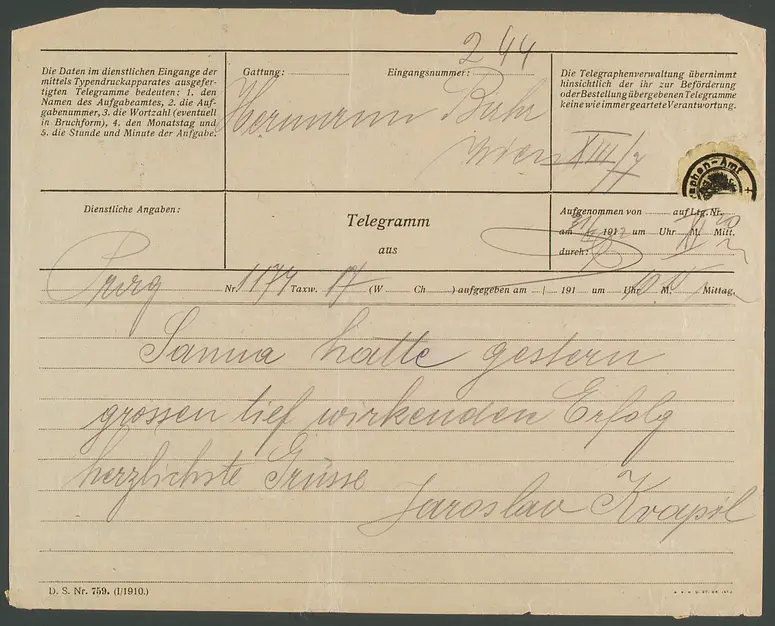 2 44
Die Daten im dienstlichen Eingange der
mittels Typendruckapparates ausgefer-
tigten Telegramme bedeuten: 1. den
Namen des Aufgabeamtes, 2. die Auf-
gabenummer, 3. die Wortzahl (eventuell
in Bruchform), 4. den Monatstag und
5. die Stunde und Minute der Aufgabe.
Gattung: Eingangsnummer:
Hermann Bahr
Wien XIII/7
Die Telegraphenverwaltung übernimmt
hinsichtlich der ihr zur Beförderung
oder Bestellung übergebenen Telegramme
keine wie immer geartete Verantwortung.
Dienstliche Angaben:
Telegramm
aus
Aufgenommen von auf Ltg. Nr.
am 191 um Uhr M. Mitt.
durch:
Prag Nr. 1174 Taxw. 17 (W Ch ) aufgegeben am 191 um Uhr M. Mittag.
Sanna hatte gestern
grossen tief wirkenden Erfolg
herzlichste Grüsse
Jaroslav Kvapil
D. S. Nr. 759. (I/1910.)